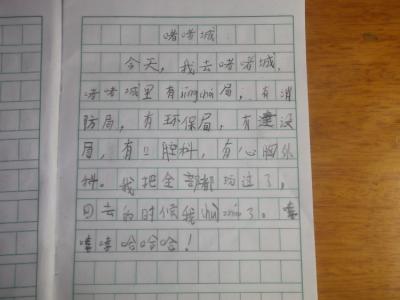 啫啫城
今天，我去啫啫城，
啫啫城里有jingcha局，有消
防局，有环保局，有建设
局，有口腔科，有心胸外
科。我把全部都玩过了，
回去的时候我
了。嘻
嘻嘻哈哈哈！